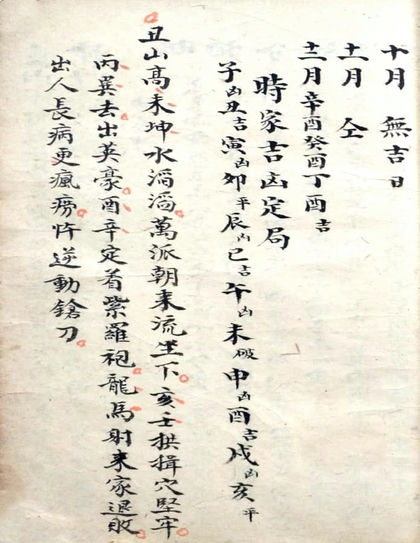 十月　無吉日
十一月　仝
十二月辛酉癸酉丁酉吉
時家吉凶定局
子凶丑吉寅凶卯平辰凶巳吉午凶未破申凶酉吉戌凶亥平
丑山高未坤水滔滔萬派朝来流坐下亥壬拱揖穴堅牢
丙巽去出英豪酉辛定着紫羅袍龍馬射来家退敗
出人長病更瘋癆忤逆動鎗刀